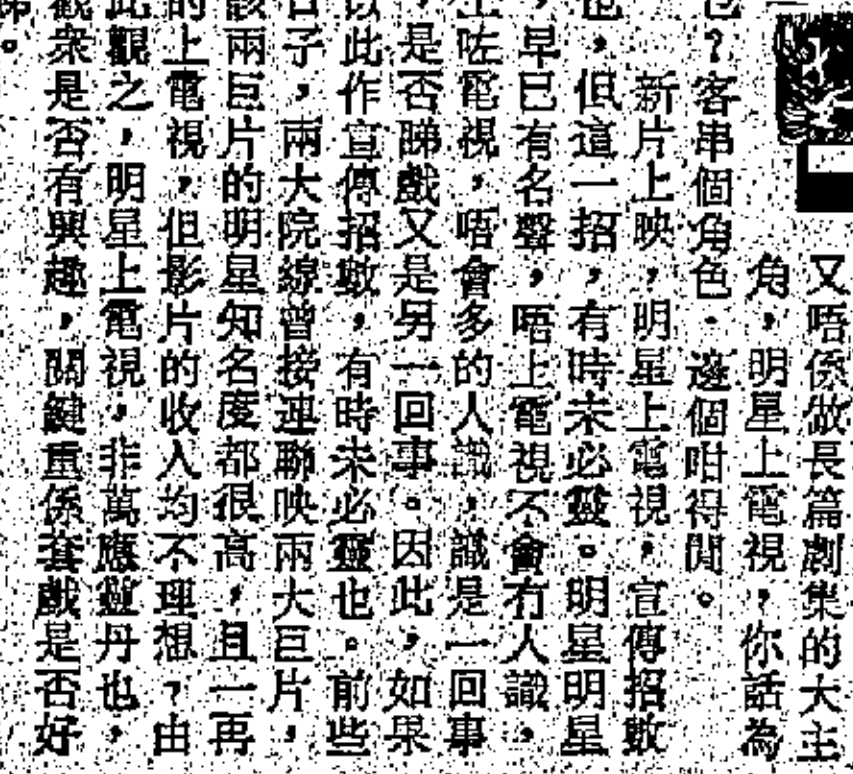 又唔係做長篇劇集的大主
角，明星上電視，你話為
乜？客串個角色．邊個咁得閒。
新片上映，明星上電視，宣傳招數
也，但這一招，有時未必靈。明星明星
，早已有名聲，唔上電視不會有人識，
上咗電視，唔會多的人識，識是一回事
，是否睇戲又是另一回事。因此，如果
以此作宣傳招數，有時未必靈也。前些
日子，兩大院線曾接連聯映兩大巨片，
該兩巨片的明星知名度都很高，且一再
的上電視，但影片的收入均不理想，由
此觀之，明星上電視，非萬應靈丹也，
觀眾是否有興趣，關鍵重係套戲是否好
睇。